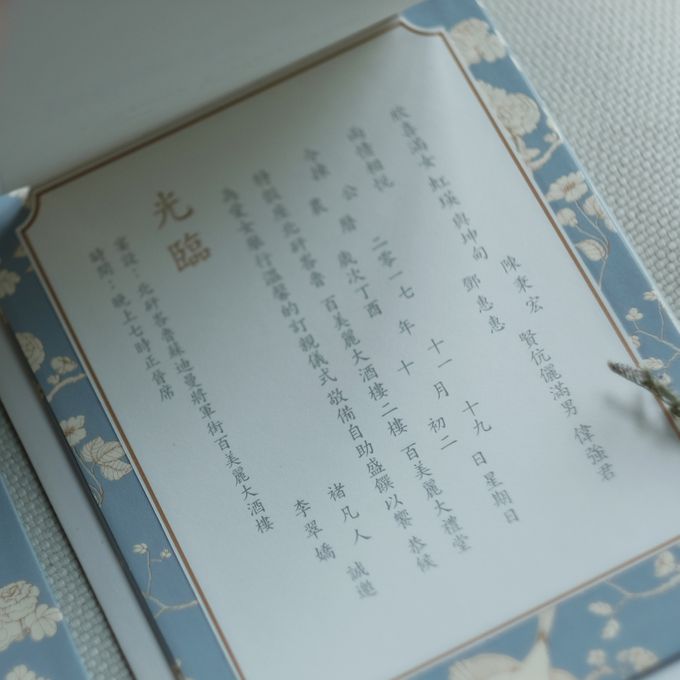 欣喜滿女 虹瑛 與坤向 陳秉宏 鄧惠惠 賢伉儷滿男 偉強君
兩情相悅
今擇 公曆 二零一七年 十一月 十九日星期日
農曆 歲次丁酉 年 十月 初二
特假座北斫答香 百美麗大酒樓二樓 百美麗大禮堂
為愛女舉行溫馨的訂親儀式 敬備自助盛饌以饗 恭候
光臨
褚凡人 李翠嬌 誠邀
宴設：北斫答香蘇迪曼將軍街百美麗大酒樓
時間：晚上七時正晉席